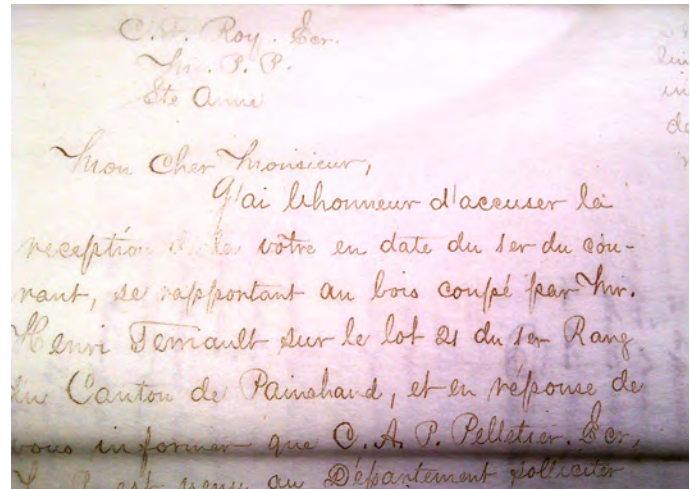 C. F. Roy. Ecr.
M. P. P.
Ste Anne
Mon Cher Monsieur,
J'ai l'honneur d'accuser la
reception de la vôtre en date du 1er du cou-
rant, se rapportant au bois coupé par Mr.
Henri Terriault sur le lot 21 du 1er Rang
du Canton de Painchaud, et en réponse de
vous informer que C. A. P. Pelletier. Ecr,
M. P. est venu au Département solliciter